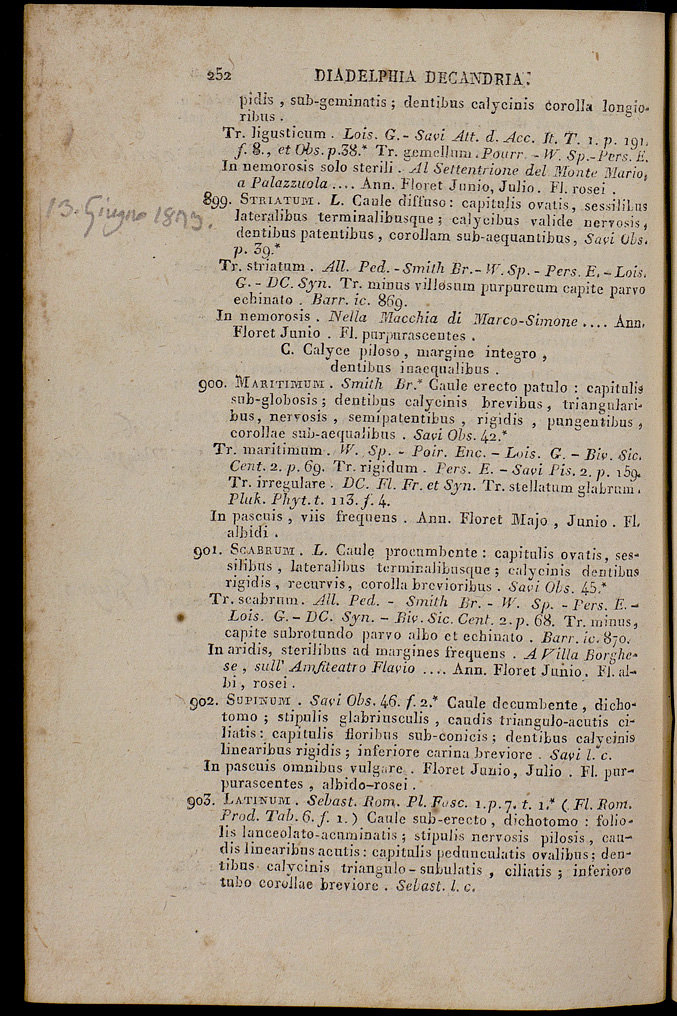 252 DIADELPHIA DECANDRIA.
pidis , sub-geminatis ; dentibus calycinis corolla longio-
ribus .
Tr. ligusticum . Lois. G. - Savi Att. d. Acc. It. T. 1. p. 191.
f. 8., et Obs. p.38.* Tr. gemellum. Pourr. - W. Sp.-Pers. E.
In nemorosis solo sterili . Al Settentrione del Monte Mario,
a Palazzuola .... Ann. Floret Junio, Julio. Fl. rosei .
899. STRIATUM . L. Caule diffuso: capitulis ovatis, sessilibus
13. Giugno
lateralibus terminalibusque ; calycibus valide nervosis,
dentibus patentibus , corollam sub-aequantibus, Savi Obs.
p. 39.*
Tr. striatum . All. Ped. - Smith Br.- W. Sp. - Pers. E. - Lois.
G. - DC. Syn. Tr. minus villosum purpureum capite parvo
echinato . Barr. ic. 869.
In nemorosis . Nella Macchia di Marco-Simone .... Ann.
Floret Junio . Fl. purpurascentes .
C. Calyce piloso , margine integro ,
dentibus inaequalibus .
900. MARITIMUM . Smith Br.* Caule erecto patulo : capitulis
sub-globosis ; dentibus calycinis brevibus , triangulari-
bus, nervosis , semipatentibus , rigidis , pungentibus ,
corollae sub-aequalibus . Savi Obs. 42.*
Tr. maritimum . W. Sp. - Poir. Enc. - Lois. G. - Biv. Sic.
Cent. 2. p. 69. Tr. rigidum . Pers. E. - Savi Pis. 2. p. 159.
Tr. irregulare . DC. Fl. Fr. et Syn. Tr. stellatum glabrum.
Pluk. Phyt. t. 113. f. 4.
In pascuis , viis frequens . Ann. Floret Majo , Junio . Fl.
albidi .
901. SCABRUM . L. Caule procumbente : capitulis ovatis, ses-
silibus , lateralibus terminalibusque ; calycinis dentibus
rigidis , recurvis, corolla brevioribus . Savi Obs. 45.*
Tr. scabrum. All. Ped. - Smith Br. - W. Sp. - Pers. E. -
Lois. G. - DC. Syn. - Biv. Sic. Cent. 2. p. 68. Tr. minus,
capite subrotundo parvo albo et echinato . Barr. ic. 870.
In aridis, sterilibus ad margines frequens . A Villa Borghe-
se , sull' Amfiteatro Flavio .... Ann. Floret Junio. Fl. al-
bi , rosei .
902. SUPINUM . Savi Obs. 46. f. 2.* Caule decumbente , dicho-
tomo ; stipulis glabriusculis , caudis triangulo-acutis ci-
liatis : capitulis floribus sub-conicis ; dentibus calycinis
linearibus rigidis ; inferiore carina breviore . Savi l. c.
In pascuis omnibus vulgare . Floret Junio, Julio . Fl. pur-
purascentes , albido-rosei .
903. LATINUM . Sebast. Rom. Pl. Fasc. 1. p. 7. t. 1.* ( Fl. Rom.
Prod. Tab. 6. f. 1. ) Caule sub-erecto , dichotomo : folio-
lis lanceolato-acuminatis ; stipulis nervosis pilosis , cau-
dis linearibus acutis : capitulis pedunculatis ovalibus; den-
tibus calycinis triangulo-subulatis , ciliatis ; inferiore
tubo corollae breviore . Sebast. l. c.